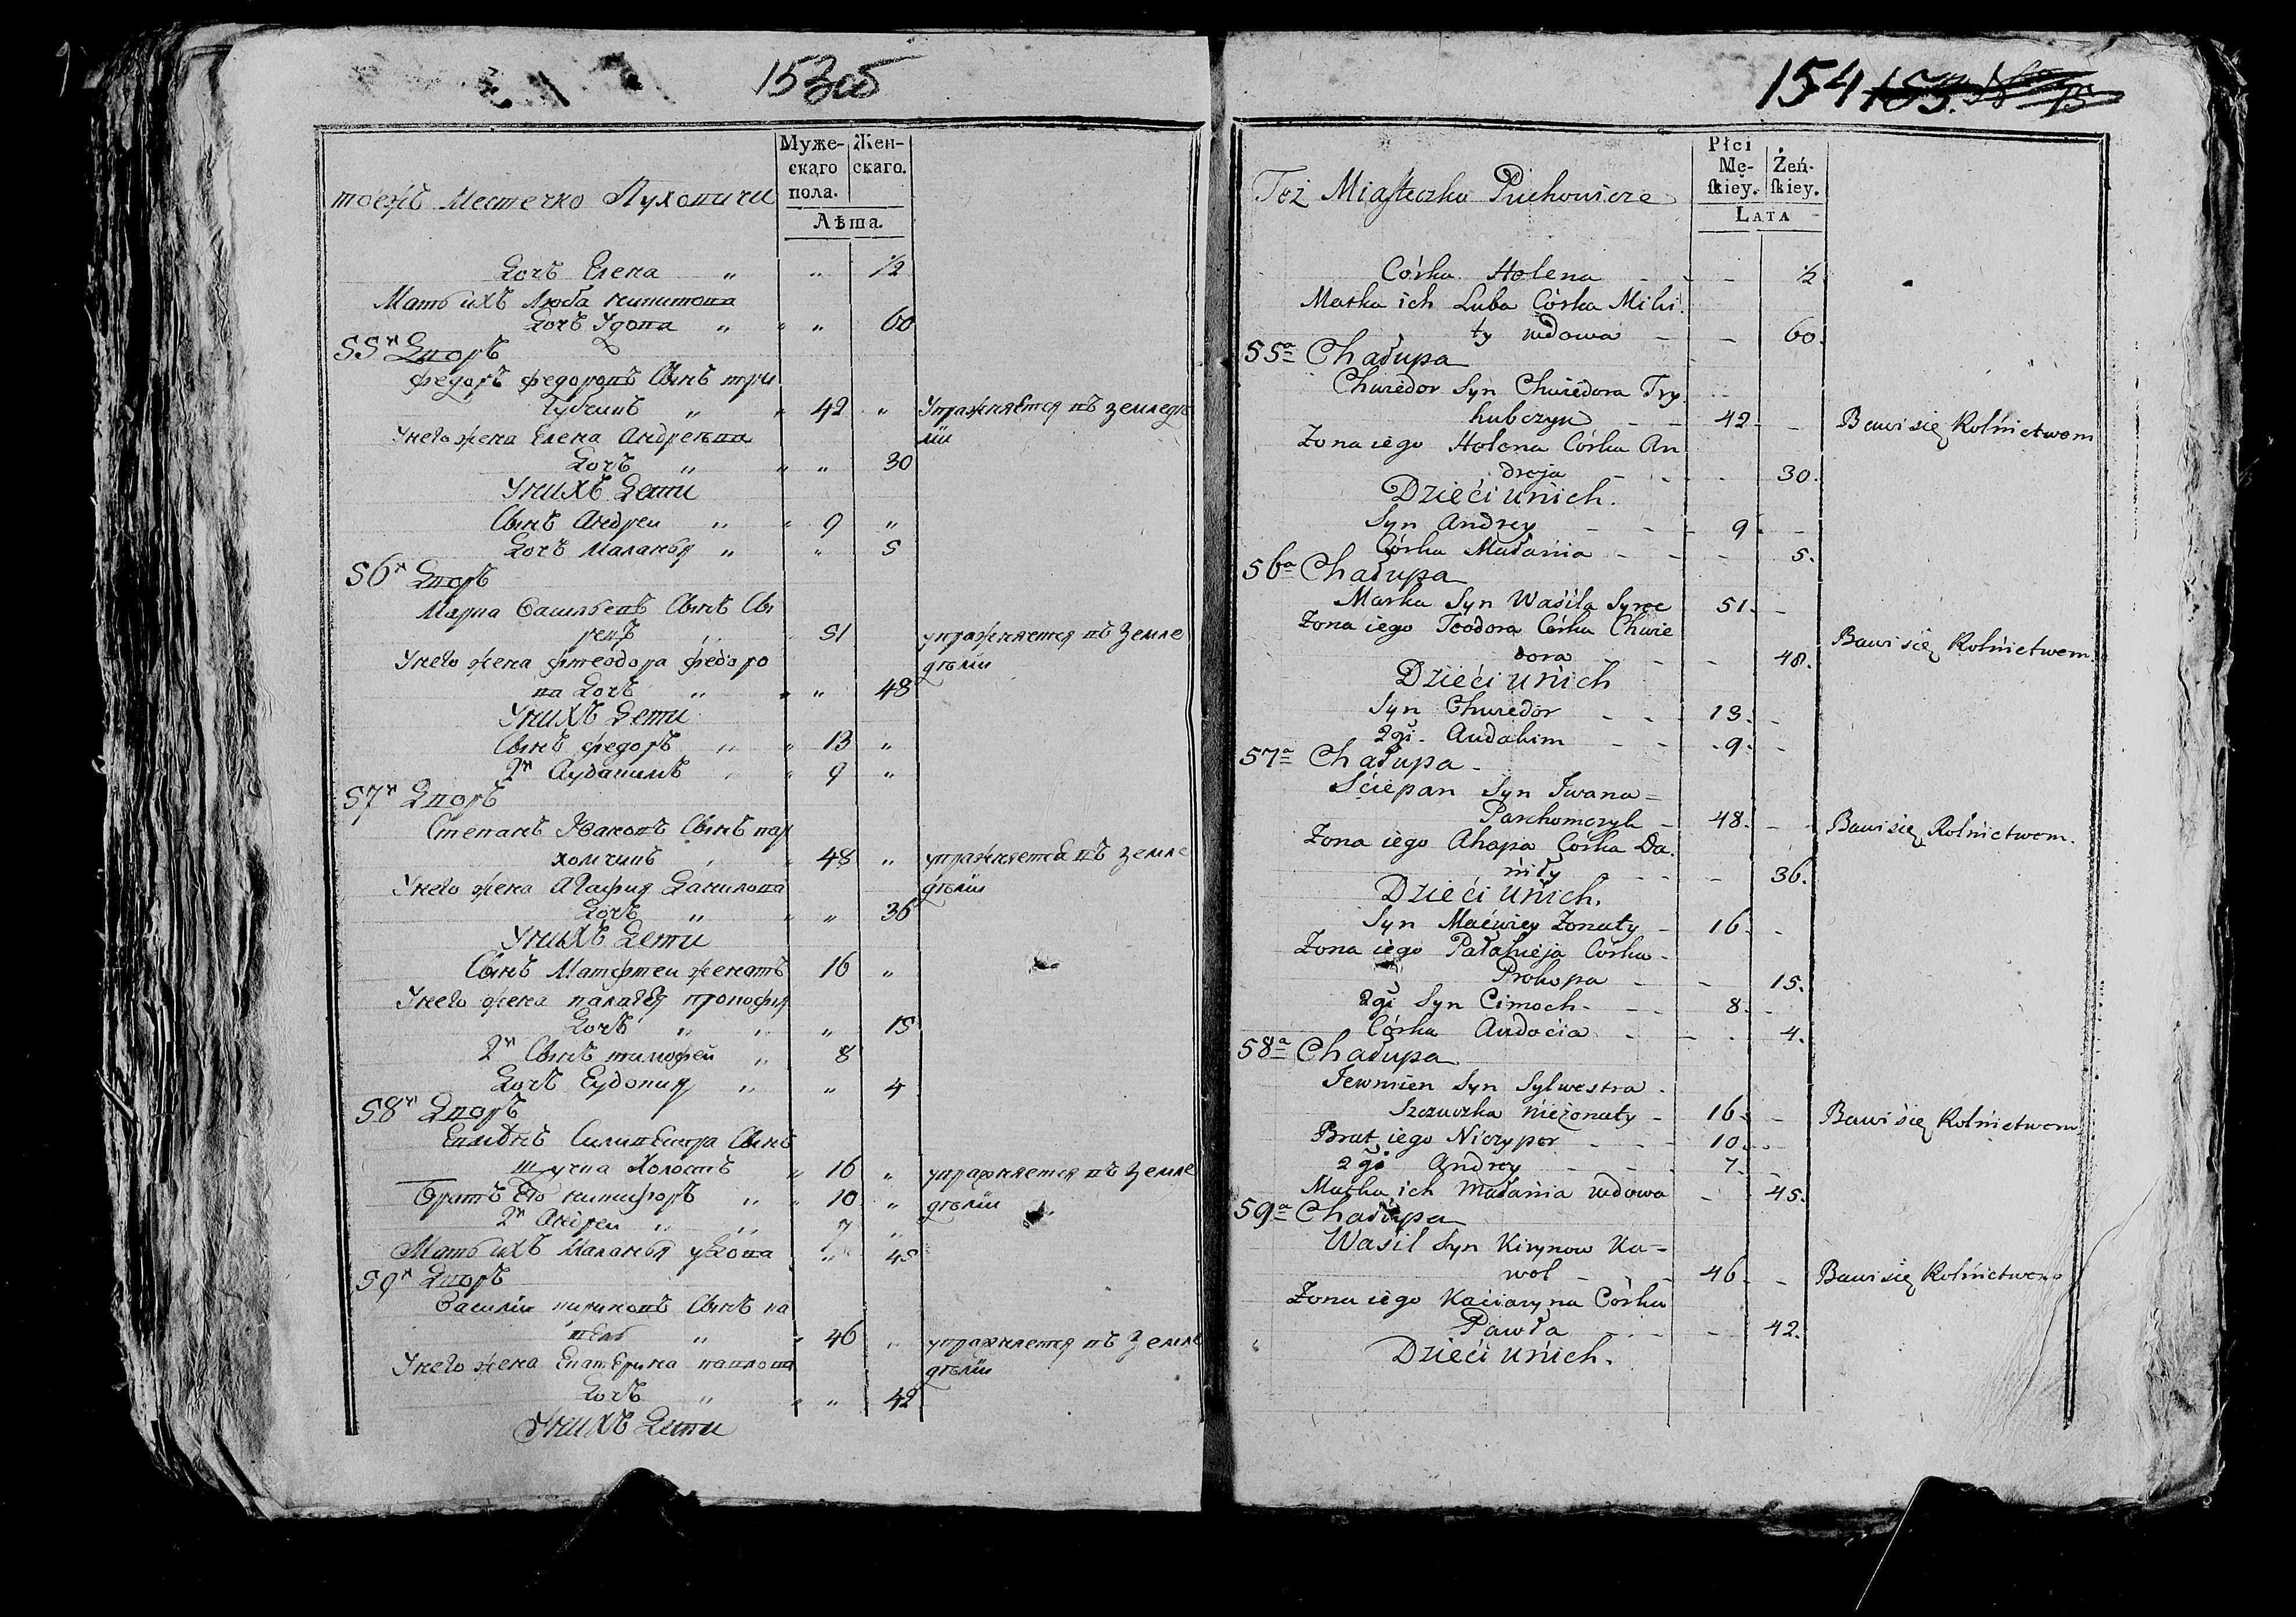 153об
Муже- Жен-
скаго скаго.
пола.
Лѣта.
тоежъ Местечко Пуховичи
Дочъ Елена " " 1/2
Мать ихъ Люба Микитова
Дочъ Удова " " " 60
55й Дворъ
Федоръ Федоровъ Сынъ три
губчикъ " " 42 " Упражняется въ земледѣ
лiи
Унего жена Елена Андреева
Дочъ " " " 30
Унихъ Дети
Сынъ Андреи " " 9 "
Дочъ Маланья " " 5
56й Дворъ
Марка Васильевъ Сынъ Сы
рецъ " 51 упражняется въ Земле
дѣлiи
Унего жена Фтеодора Федоро
ва Дочъ " " " 48
Унихъ Дети
Сынъ Федоръ " " 13 "
2й Аудакимъ " " 9 "
57й Дворъ
Степанъ Ивановъ Сынъ пар
хомчикъ " " 48 " упражняется въ земле
дѣлiи
Унего жена Агафия Данилова
Дочъ " " " 36
Унихъ Дети
Сынъ Матфтеи женатъ 16 "
Унего жена палагея прокофия
Дочъ " " " 15
2й Сынъ тимофей " 8
Дочъ Еудокия " " 4
58й Дворъ
Сильвестра Сынъ
щучка Холостъ " 16 " упражняется въ Земле
дѣлiи
Братъ Его никифоръ " " 10 "
2й Андреи " " 7 "
Мать ихъ Маланья удова " 45
59й Дворъ
Василiи кириковъ Сынъ ка
валь " " 46 " упражняется въ Земле
дѣлiи
Унего жена Екатерина павлова
Дочъ " " " 42
Унихъ Дети
154
Płci
Mę- Żeń-
skiey. skiey.
LATA
Też Miasteczko Puchowicze
Córka Holena - - 1/2
Matka ich Luba Córka Miki
ty wdowa - - 60.
55a Chałupa
Chwiedor Syn Chwiedora Try
hubczyk - - 42. - Bawi się Rolnictwem
Zona iego Holena Córka An
dreja - - 30.
Dzieći unich.
Syn Andrey - - - 9. -
Córka Małania - - - 5.
56a Chałupa
Marka Syn Wasila Syrec 51. -
Zona iego Teodora Córka Chwie
dora - - 48. Bawi się Rolnictwem.
Dzieći unich
Syn Chwiedor - - 13. -
2gi. Audakim - - 9. -
57a Chałupa
Sciepan Syn Iwana =
Parchomczyk - 48. - Bawi się Rolnictwem.
Zona iego Ahapa Córka Da.
niły - - - 36.
Dzieći unich.
Syn Maćwiey Zonaty - 16. -
Zona iego Pałahieja Córka -
Prokopa - - 15.
2gi Syn Cimoch - - 8. -
Córka Audocia - - - 4.
58a Chałupa
Jewmien Syn Sylwestra -
Szczuczka nieżonaty - 16. - Bawi się Rolnictwem
Brat iego Niczypor - - 10. -
2gi Andrey - - - 7. -
Matka ich Małania wdowa - 45.
59a Chałupa
Wasil Syn Kirynow Ka=
wol - - 46. - Bawi się Rolnictwem
Zona iego Kaciaryna Córka
Pawła - - - 42.
Dzieći unich.